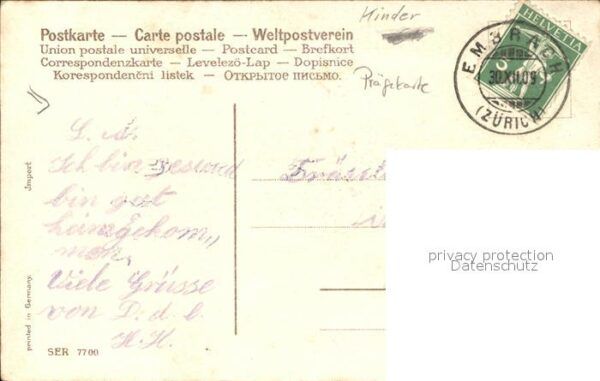 Kinder
Postkarte — Carte postale — Weltpostverein
Union postale universelle — Postcard — Brefkort
Correspondenzkarte — Levelező-Lap — Dopisnice
Korespondenční listek — Открытое письмо.
Prägekarte
HELVETIA
5
EMBRACH
30.XII.09
(ZÜRICH)
L. d.
Ich bin gesund
bin gut
heimgekom„
men.
Viele Grüsse
von D. d. l.
H. H.
Fräule
in
Import
printed in Germany.
SER 7700
privacy protection
Datenschutz